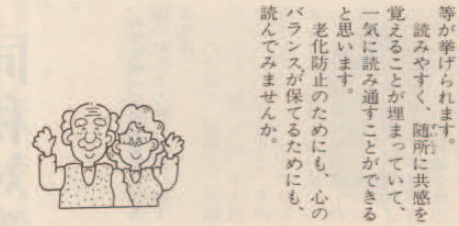 等が挙げられます。
読みやすく、随所に共感を
覚えることが埋まっていて、
一気に読み通すことができる
と思います。
老化防止のためにも、心の
バランスが保てるためにも、
読んでみませんか。